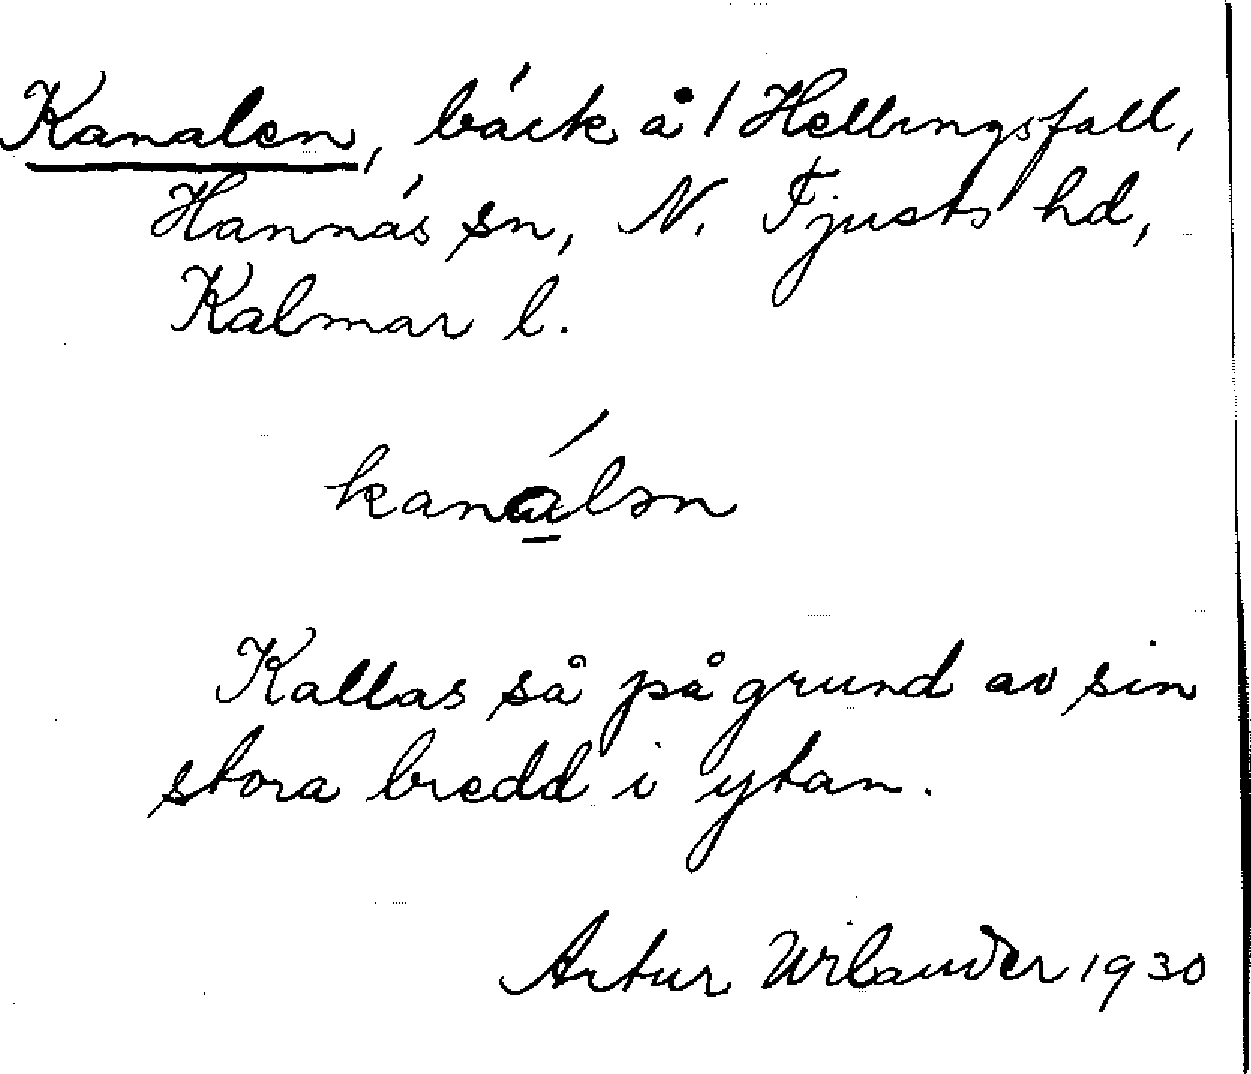 Kanalen, bäck å 1 Hellingsfall,
Hannäs sn, N. Tjusts hd,
Kalmar l.
kanálən
Kallas så på grund av sin
stora bredd i ytan.
Artur Wilander 1930